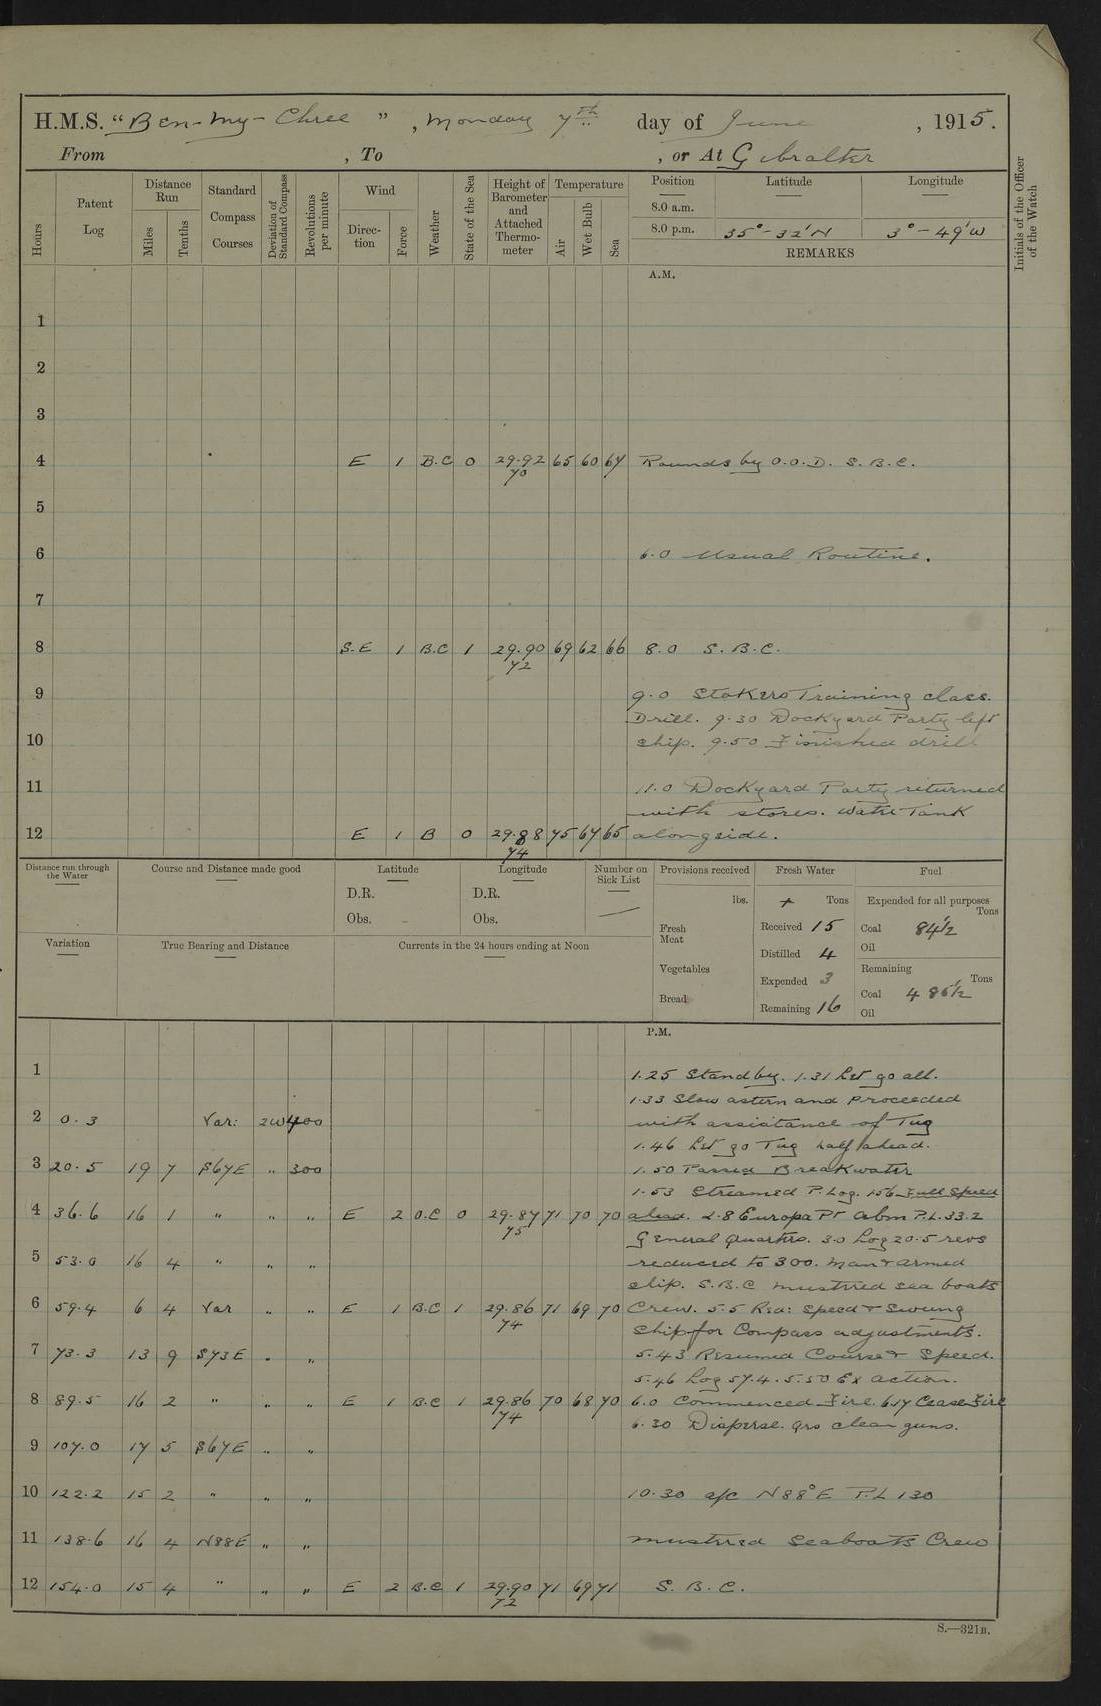 H.M.S. "Ben-My-Chree", Monday 7th day of June, 1915.
From , To , or At Gibralter
Hours
Patent Log
Distance Run
Miles
Tenths
Standard Compass Courses
Deviation of Standard Compass
Revolutions per minute
Wind
Direc-tion
Force
Weather
State of the Sea
Height of Barometer and Attached Thermo-meter
Temperature
Air
Wet Bulb
Sea
Position Latitude Longitude
8.0 a.m.
8.0 p.m. 35°-32'N 3°-49'W
REMARKS
Initials of the Officer of the Watch
A.M.
1
2
3
4 E 1 B.C 0 29.92 70 65 60 67 Rounds by O.O.D. S.B.C.
5
6 6.0 Usual Routine.
7
8 S.E 1 B.C 1 29.90 72 69 62 66 8.0 S.B.C.
9 9.0 Stokers Training class.
Drill. 9.30 Dockyard Party left
10 ship. 9.50 Finished drill
11 11.0 Dockyard Party returned
with stores. Water Tank
12 E 1 B 0 29.88 74 75 67 65 alongside.
Distance run through the Water
Course and Distance made good
Latitude
D.R.
Obs. -
Longitude
D.R.
Obs.
Number on Sick List
—
Provisions received
lbs.
Fresh Meat
Vegetables
Bread
Fresh Water
+ Tons
Received 15
Distilled 4
Expended 3
Remaining 16
Fuel
Expended for all purposes
Tons
Coal 84½
Oil
Remaining
Tons
Coal 486½
Oil
Variation
True Bearing and Distance
Currents in the 24 hours ending at Noon
P.M.
1 1.25 Standby. 1.31 Let go all.
1.33 Slow astern and proceeded
2 0.3 Var: 2W 400 with assistance of Tug
1.46 Let go Tug half ahead.
3 20.5 19 7 S67E " 300 1.50 Passed Breakwater
1.53 Streamed P.Log. 1.56 Full Speed
4 36.6 16 1 " " " E 2 O.C 0 29.87 75 71 70 70 ahead. 2.8 Europa Pt abm P.L. 33.2
General Quarters. 3.0 Log 20.5 revs
5 53.0 16 4 " " " reduced to 300. Man & armed
ship. S.B.C mustered sea boats
6 59.4 6 4 Var " " E 1 B.C 1 29.86 74 71 69 70 Crew. 5.5 Red: Speed & Swung
Ship for Compass adjustments.
7 73.3 13 9 S73E " " 5.43 Resumed Course & Speed.
5.46 Log 57.4. 5.50 Ex action.
8 89.5 16 2 " " " E 1 B.C 1 29.86 74 70 68 70 6.0 Commenced Fire. 6.17 Cease Fire
6.30 Disperse. Qrs clean guns.
9 107.0 17 5 S67E " "
10 122.2 15 2 " " " 10.30 a/c N88°E P.L 130
11 138.6 16 4 N88E " " mustered Seaboats Crew
12 154.0 15 4 " " " E 2 B.C 1 29.90 72 71 69 71 S.B.C.
S.—321B.